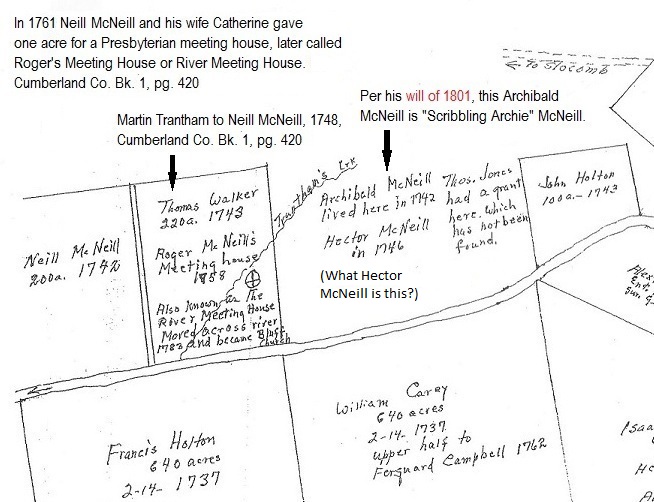 In 1761 Neill McNeill and his wife Catherine gave
one acre for a Presbyterian meeting house, later called
Roger's Meeting House or River Meeting House.
Cumberland Co. Bk. 1, pg. 420
Martin Trantham to Neill McNeill, 1748,
Cumberland Co. Bk. 1, pg. 420
Per his will of 1801, this Archibald
McNeill is "Scribbling Archie" McNeill.
← to Slocomb
Neill McNeill
200a. 1742
Thomas Walker
220a. 1743
Roger McNeill's
Meeting house
1758
Also known as The
River Meeting House
Moved across river
and became Bluff
Church
Trantham's Crk
Archibald McNeill
lived here in 1742
Hector McNeill
in 1746
(What Hector
McNeill is this?)
Thos. Jones
had a grant
here. which
has not been
found.
John Holton
100a.-1743
Francis Holton
640 acres
2-14-1737
William Carey
640 acres
2-14-1737
upper half to
Ferquard Campbell 1762